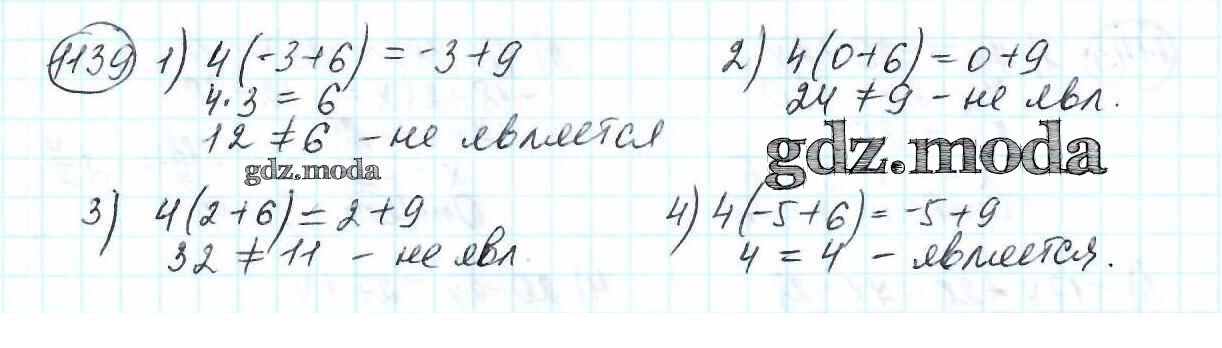 1139 1) 4(-3+6) = -3+9
4·3 = 6
12 ≠ 6 - не является
gdz.moda
2) 4(0+6) = 0+9
24 ≠ 9 - не явл.
gdz.moda
3) 4(2+6) = 2+9
32 ≠ 11 - не явл.
4) 4(-5+6) = -5+9
4 = 4 - является.